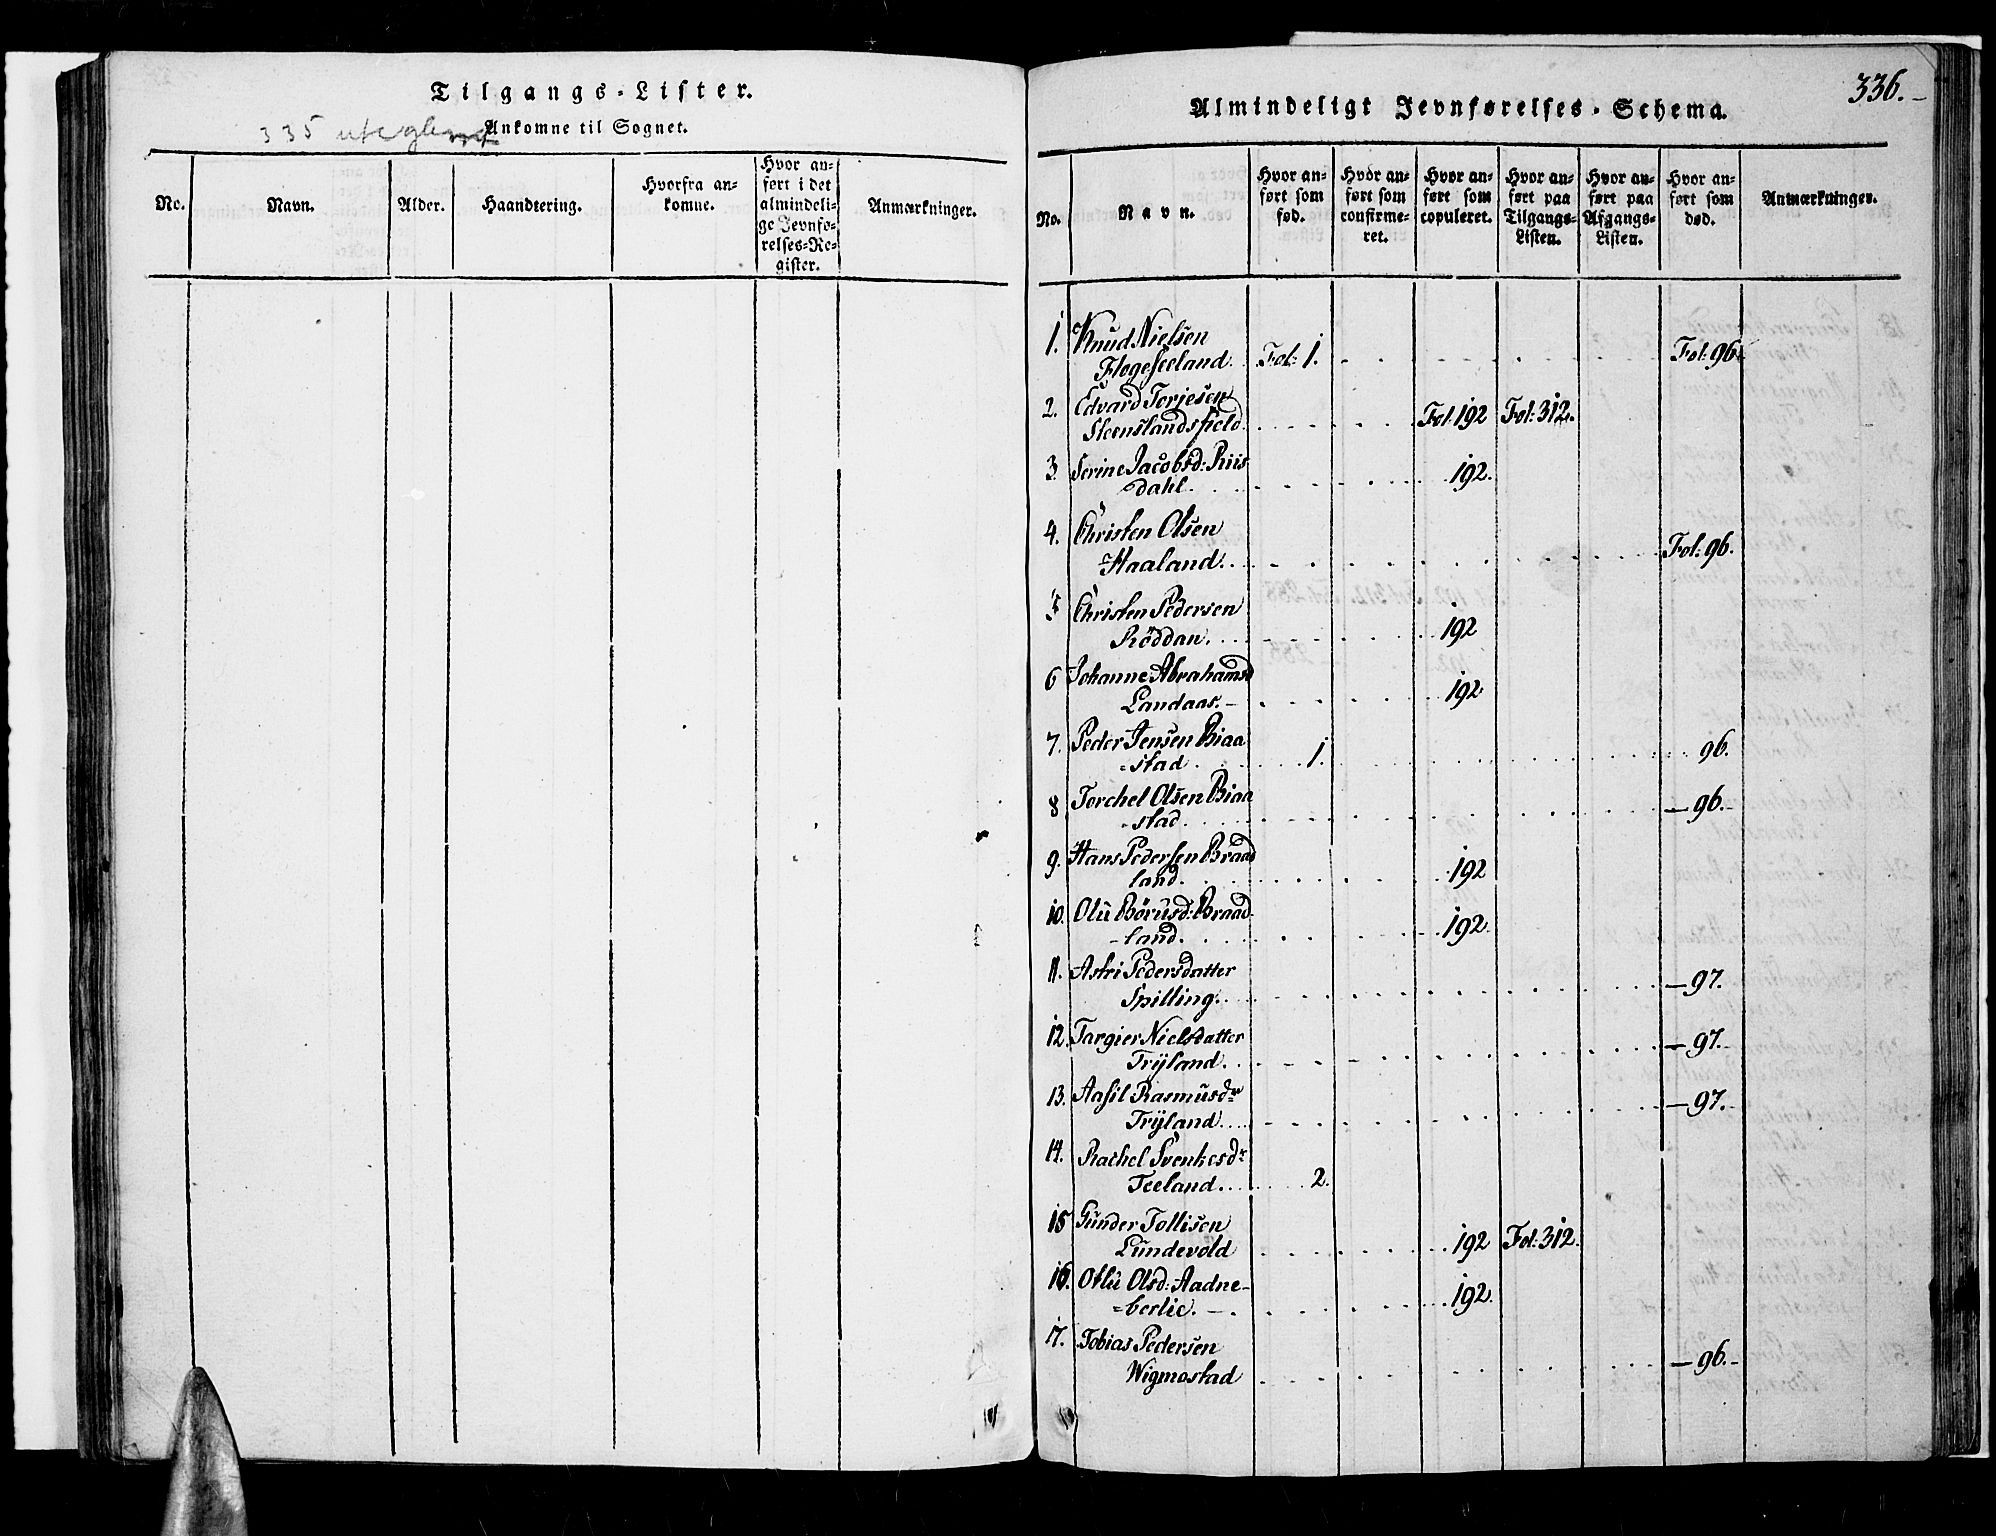 Tilgangs-Lister.
335 uteglemt
Ankomne til Sognet.
No.
Navn.
Alder.
Haandtering.
Hvorfra an-
komne.
Hvor an-
ført i det
almindeli-
ge Jevnfø-
relses-Re-
gister.
Anmærkninger.
336.-
Almindeligt Jevnførelses-Schema.
No.
Navn.
Hvor an-
ført som
fød.
Hvor an-
ført som
confirme-
ret.
Hvor an-
ført som
copuleret.
Hvor an-
ført paa
Tilgangs-
Listen.
Hvor an-
ført paa
Afgangs-
Listen.
Hvor an-
ført som
død.
Anmærkninger.
1. Knud Nielsen
Flogeseeland. Fol: 1. Fol: 96.
2. Edvard Torjesen
Steenslandsfield. Fol: 192 Fol: 312.
3. Serine Jacobsd: Riis
dahl. 192.
4. Christen Olsen
Haaland. Fol: 96.
5 Christen Pedersen
Röddan. 192
6 Johanne Abrahamsd
Landaas.- 192.
7. Peder Jensen Biaa
=stad 1. 96.
8 Torchel Olsen Biaa
-stad. -96.-
9. Hans Pedersen Braad
land. 192
10. Olü Börüsd: Braad-
-land. 192.
11. Astri Pedersdatter
Spilling. -97.
12. Targier Nielsdatter
Trÿland. -97.-
13. Aasil Rasmüsdr
Trÿland. -97.-
14. Rachel Svenkesdr
Teeland. 2.
15 Günder Tollisen
Lundevold 192 Fol: 312.
16. Otlü Olsd: Aadne-
=berlie.- 192.
17. Tobias Pedersen
Wigmostad -96.-